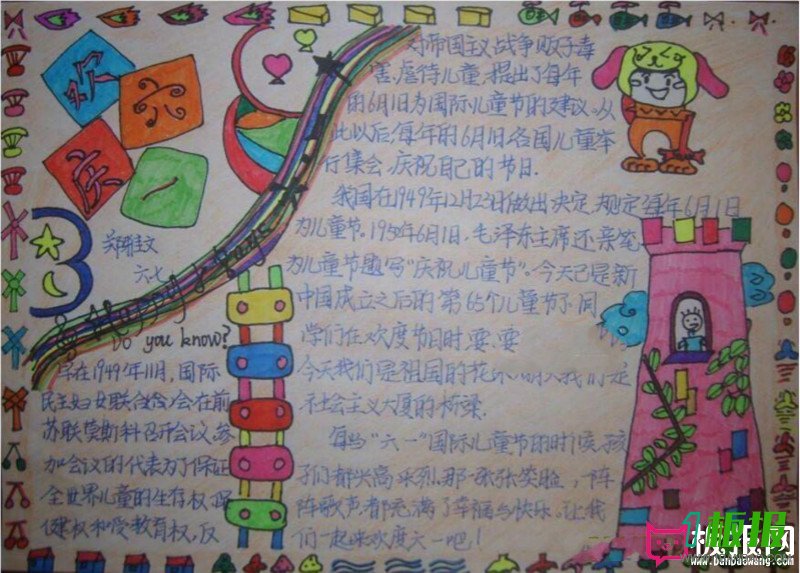 欢
六
庆
一
六.七
Happy 6 days
Do you know?
早在1949年11月,国际
民主妇女联合会在前
苏联莫斯科召开会议,参
加会议的代表为了保证
全世界儿童的生存权、保
健权和受教育权,反
对帝国主义战争贩子毒
害、虐待儿童,提出了每年
的6月1日为国际儿童节的建议。从
此以后,每年的6月1日,各国儿童举
行集会,庆祝自己的节日.
我国在1949年12月23日做出决定,规定每年6月1日
为儿童节。1950年6月1日,毛泽东主席还亲笔
为儿童节题写"庆祝儿童节"。今天已是新
中国成立之后的第65个儿童节了,同
学们在欢度节日时,要,要
今天我们是祖国的花朵,明天我们是
社会主义大厦的桥梁.
每当"六一"国际儿童节的时候,孩
子们都兴高采烈,那一张张笑脸,阵
阵歌声,都充满了幸福与快乐。让我
们一起来欢度六一吧!
1板报
板报网
www.banbaowang.com